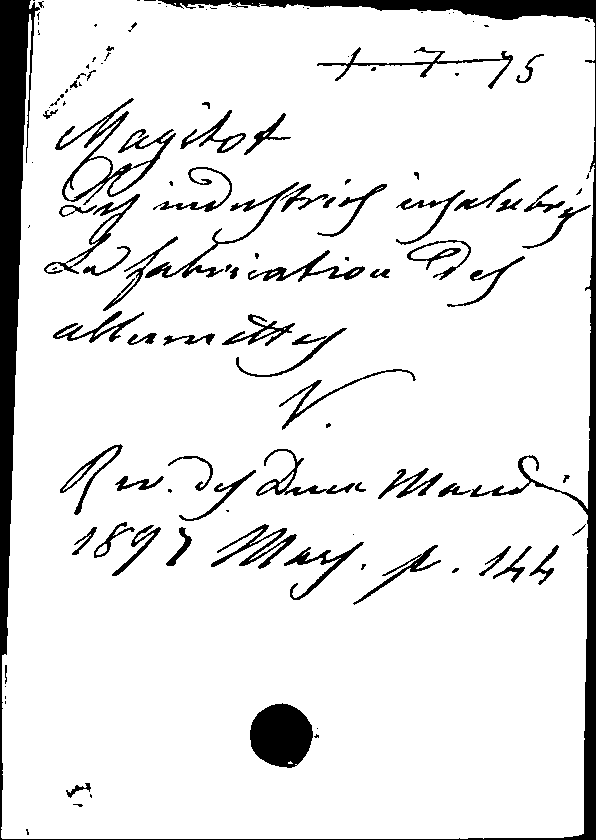 1. 7. 75
Magitot
Les industries insalubres
La fabrication des
allumettes
V.
Rev. des Deux Mondes
1897 Mars. p. 144